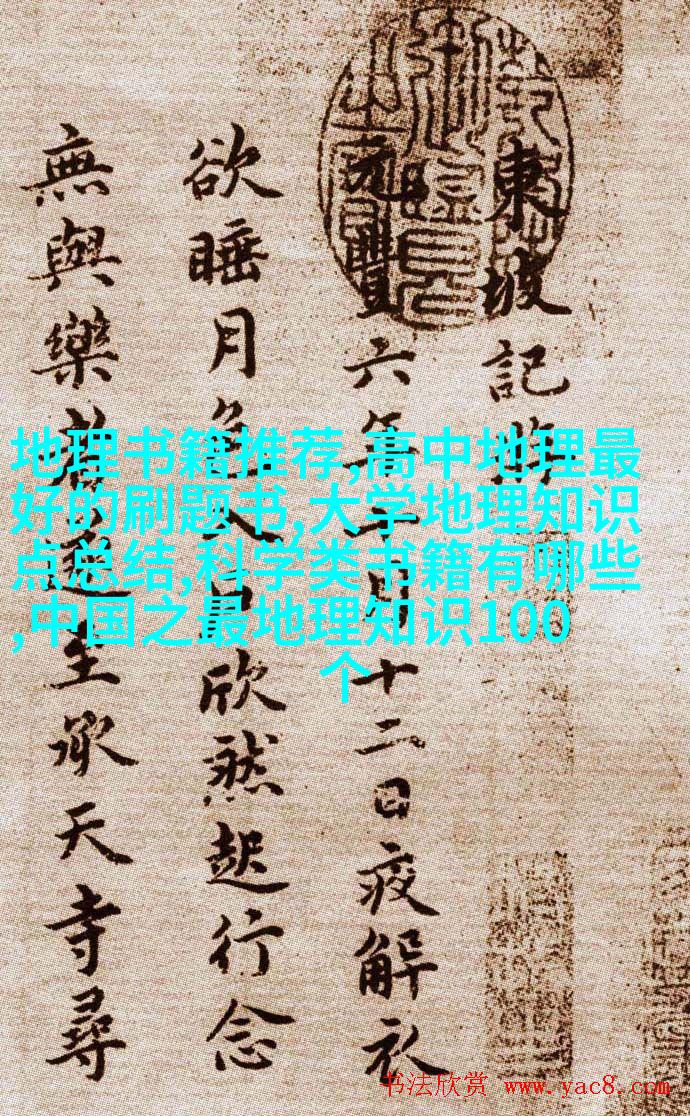 東坡記
元豐六年十月十二日夜解衣
欲睡月色入戶欣然起行念
無與樂者遂至承天寺尋
地理书籍推荐,高中地理最
好的刷题书,大学地理知识
点总结,科学类书籍有哪些
,中国之最地理知识100
个
书法欣赏 www.yac8.com